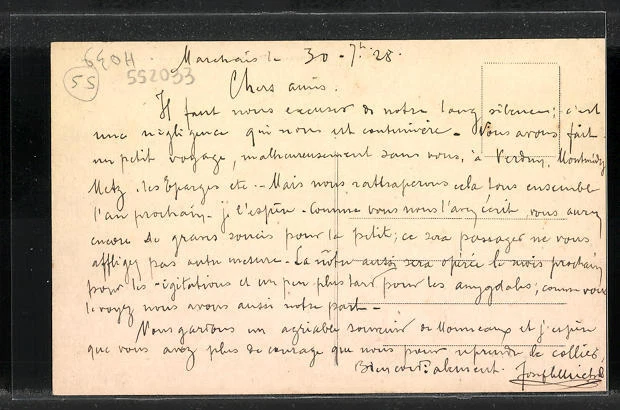 Marchais le 30-7bre 28.
HO39
55
552033
Chers amis.
Il faut nous excuser de notre long silence; c'est
une négligence qui nous est coutumière - Vous avons fait
un petit voyage, malheureusement sans vous, à Verdun, Montmédy
Metz. les Eparges etc - Mais nous rattraperons cela tous ensemble
l'an prochain - je l'espère - Comme vous nous l'avez écrit, vous aurez
encore de gravs soucis pour la petite; ce sera passager ne vous
affligez pas outre mesure - La nôtre aussi sera opérée le mois prochain
pour les végétations et un peu plus tard pour les amygdales; comme vous
le voyez nous avons aussi notre part -
Nous gardons un agréable souvenir de Monneaux et j'espère
que vous avez plus de courage que nous pour reprendre le collier,
Bien cordialement.